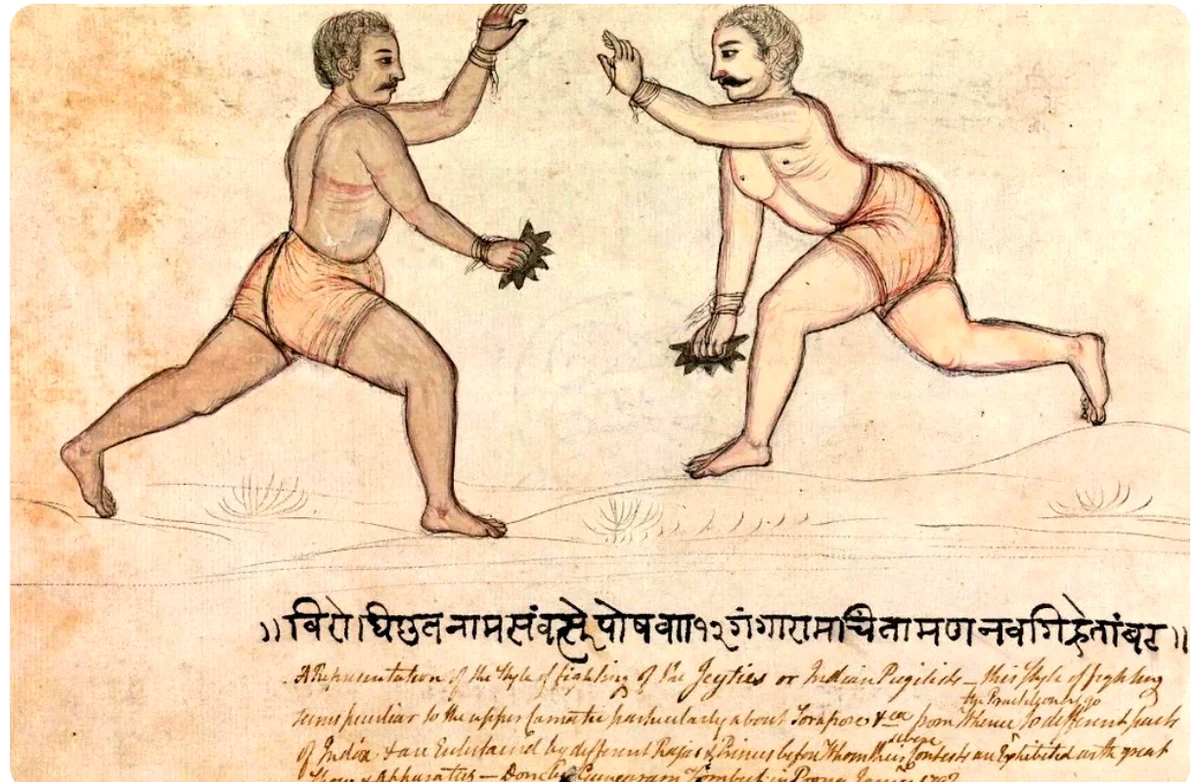 ॥ विरोधिकृत नाम संवत्सरे पोष व॥ १२ गंगाराम चिंतामण नवगिरे तांबट ॥
A Representation of the Style of fighting of the Jeyties or Indian Pugilists — this Style of fighting
seems peculiar to the upper Carnatic particularly about Sorapore & ca from Whence the Practitioners go to different parts
of India & are Entertained by different Rajas & Princes before Whom their Contests are Exhibited with great
& Apparatus — Done by Gungaram Tombut in Poona 1792